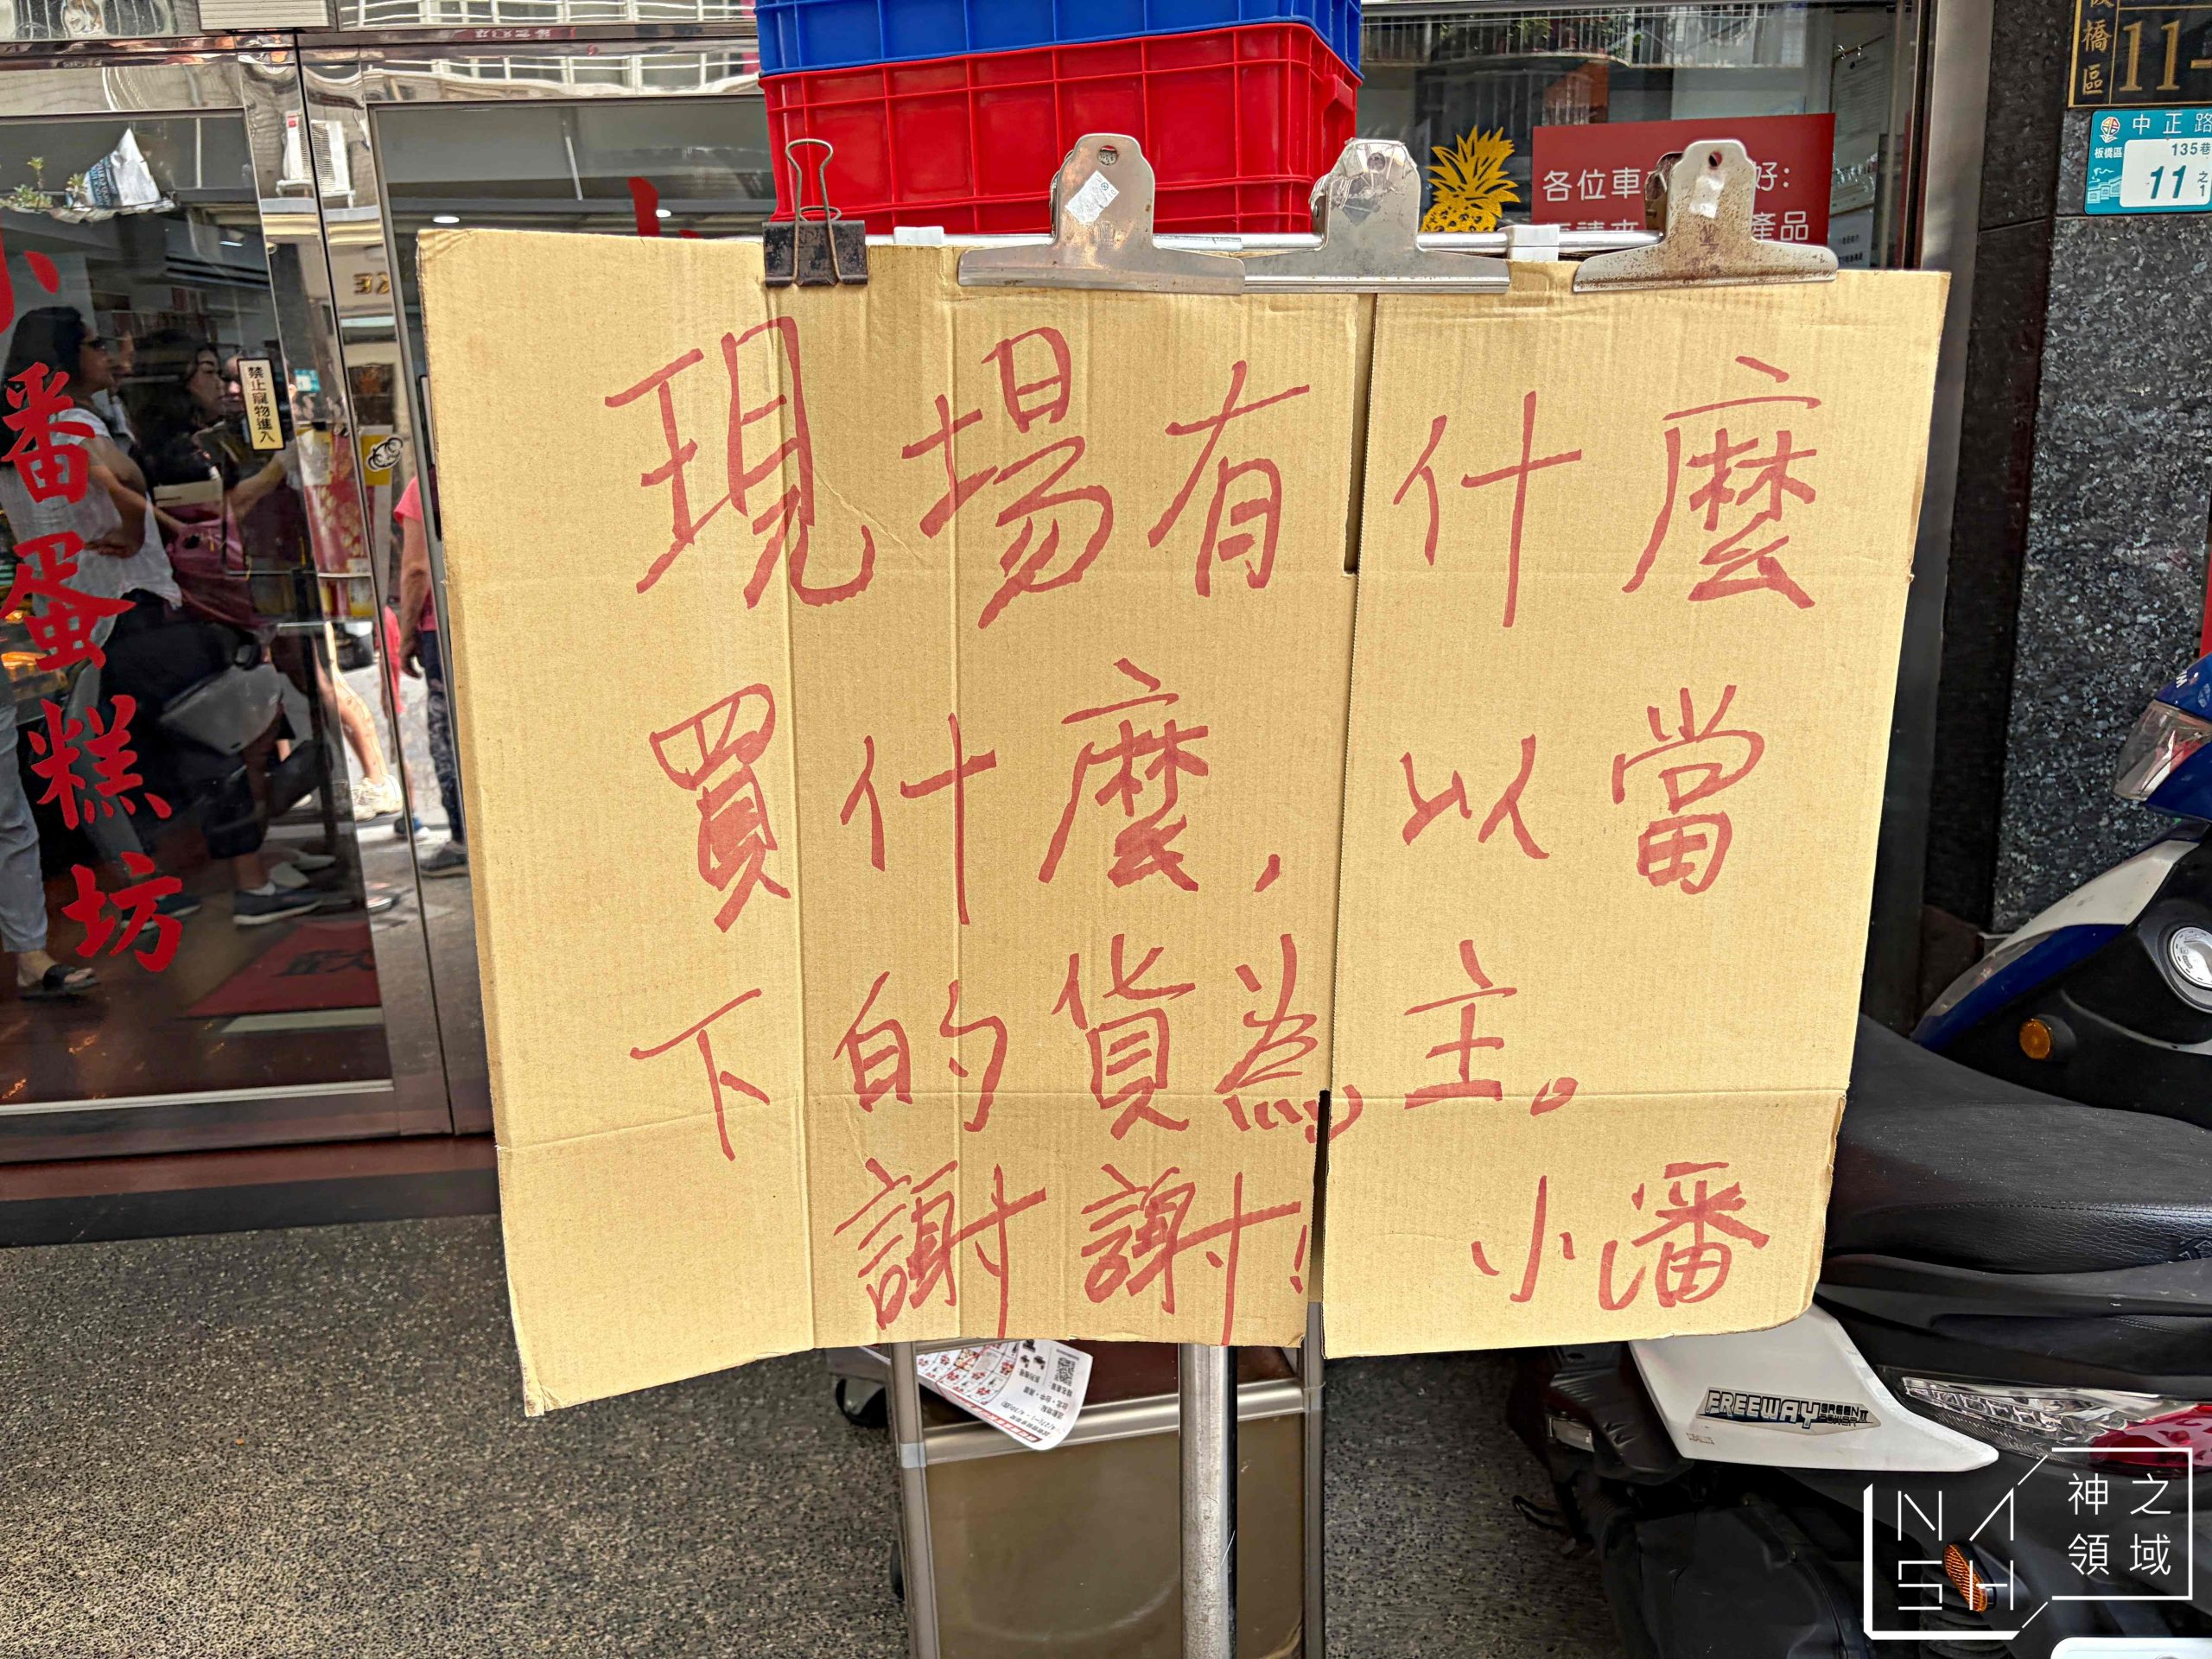 現場有什麼
買什麼，以當
下的貨為主。
謝謝！ 小潘
番蛋糕坊
禁止寵物進入
各位車
好：
產品
橋區
11-
中正路
板橋區
135巷
11之1
FREEWAY
NASH
神之
領域